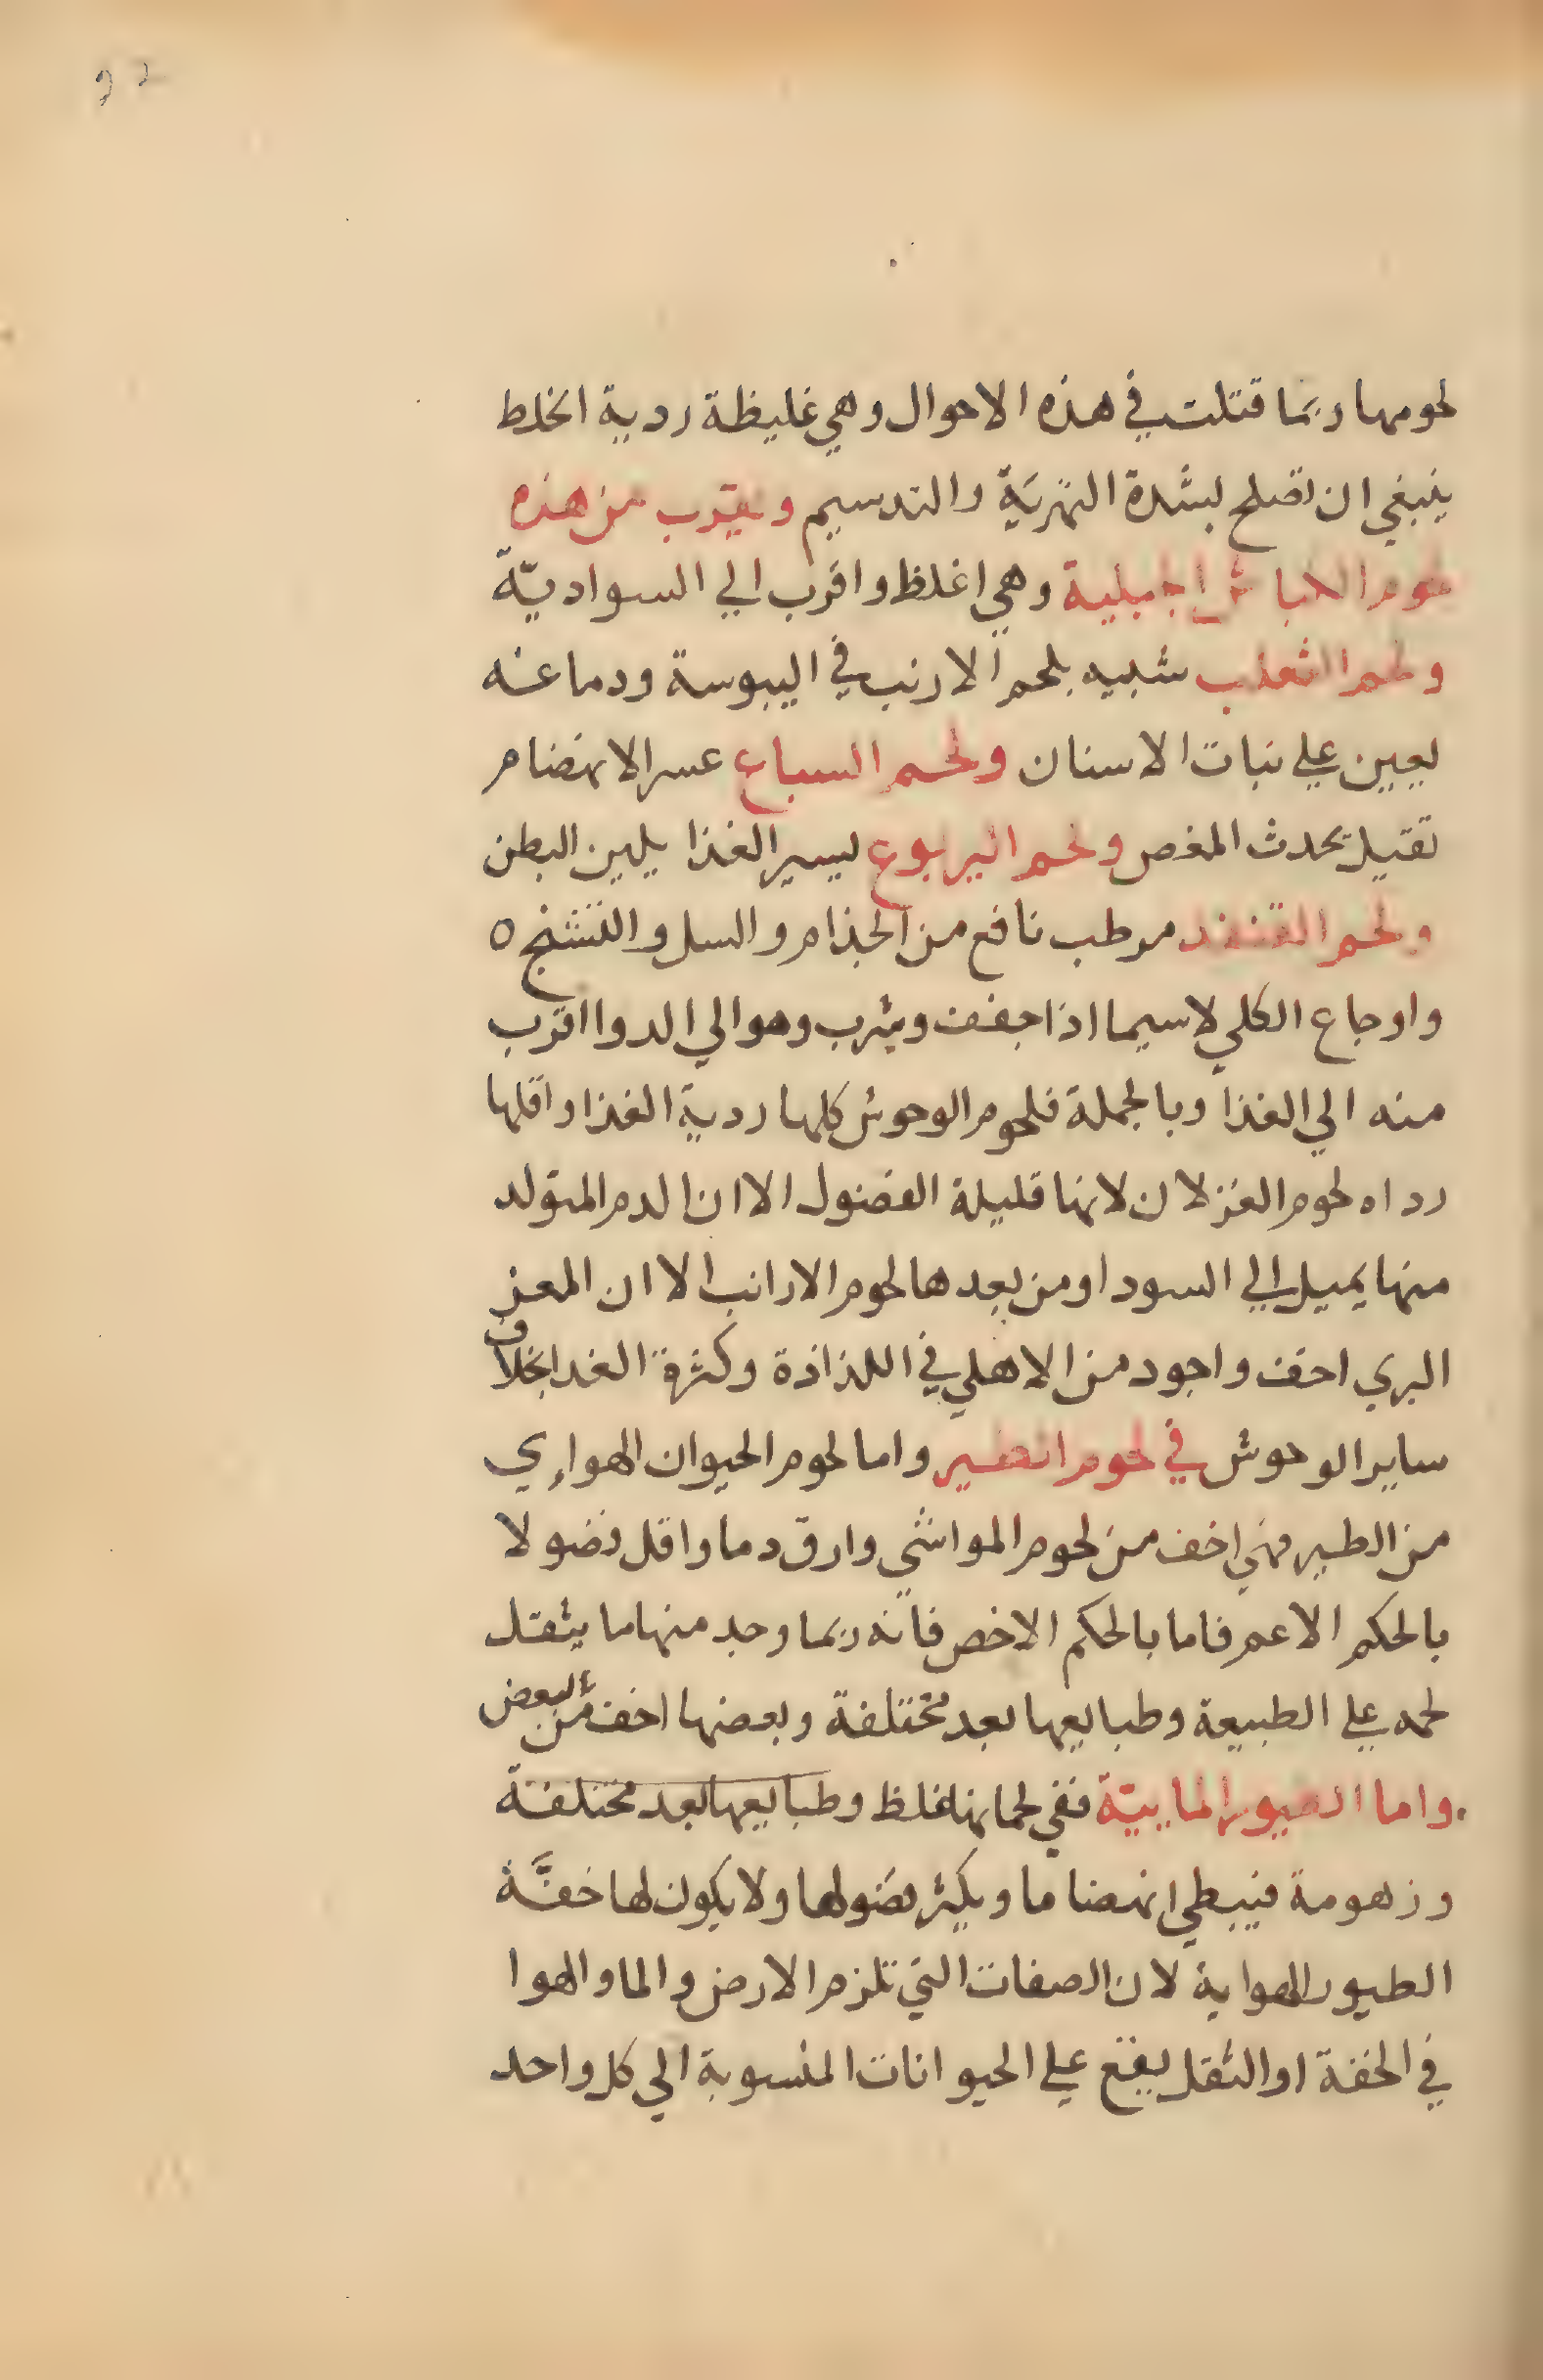 92
لحومها ربما قتلت في هذه الاحوال وهي غليظة ردية الخلط
ينبغي ان تصلح بشدة التهرية والتدسيم ويقرب من هذه
لحوم الكباش الجبلية وهي اغلظ واقرب الي السواديّة
ولحم الثعلب شبيه بلحم الارنب في اليبوسة ودماغه
يعين علي نبات الاسنان ولحم السباع عسر الانهضام
ثقيل يحدث المغص ولحم اليربوع يسير الغذا يلين البطن
ولحم القنفد مرطب نافع من الجذام والسل والتشنج ه
واوجاع الكلي لاسيما اذا جفف ويشرب وهو الي الدوا اقرب
منه الي الغذا وبالجملة فلحوم الوحوش كلها ردية الغذا واقلها
رداه لحوم الغزلان لانها قليلة الفضول الا ان الدم المتولد
منها يميل الي السودا ومن بعدها لحوم الارانب الا ان المعز
البري اخف واجود من الاهلي في اللذاذة وكثرة الغدا بخلاف
ساير الوحوش في لحوم الطير واما لحوم الحيوان الهواءي
من الطير فهي اخف من لحوم المواشي وارق دما واقل فضولا
بالحكم الاعم فاما بالحكم الاخص فانه ربما وجد منها ما يثقل
لحمه علي الطبيعة وطبايعها بعد مختلفة وبعضها اخف من البعض
واما الطيور المايية ففي لحمانها غلظ وطبايعها بعد مختلفة
وزهومة فيبطي انهضاما ويكثر فضولها ولا يكون لها خفَّة
الطيور الهواية لان الصفات التي تلزم الارض والما والهوا
في الخفة او الثقل يقع علي الحيوانات المنسوبة الي كل واحد